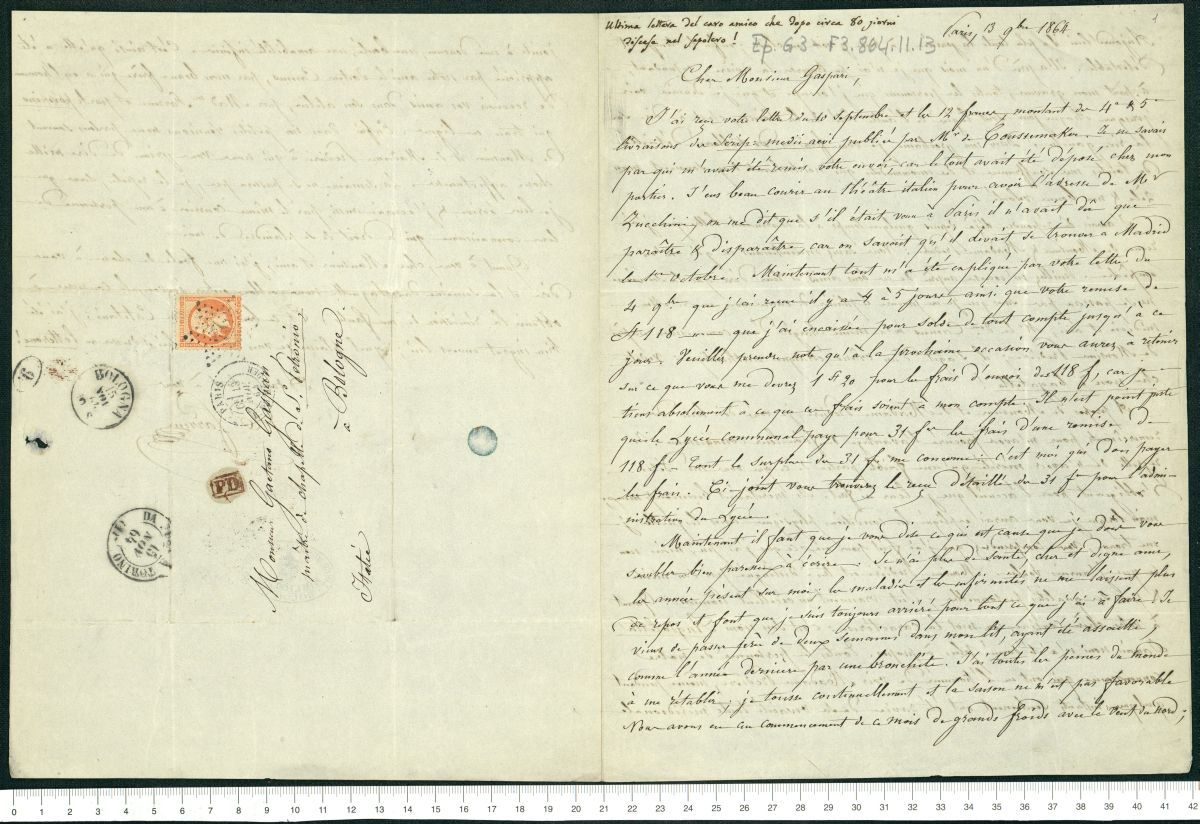 Ultima lettera del caro amico che dopo circa 80 giorni
discese nel sepolcro!
Ep. G3 - F3.864.11.13
1
Paris, 13 9bre 1864
Cher Monsieur Gaspari,
J'ai reçu votre lettre du 10 septembre et les 12 francs, montant des 4e & 5e
livraisons des Script. medii aevi publiés par Mr de Coussemaker. Je ne savais
par qui m'avait été remis votre envoi, car le tout avait été déposé chez mon
portier. J'eus beau courir au théâtre italien pour avoir l'adresse de Mr
Zucchini, on me dit que s'il était venu à Paris il n'avait dû que
paraître & disparaître, car on savait qu'il devait se trouver à Madrid
le 1er octobre. Maintenant tout m'a été expliqué par votre lettre du
4 9bre que j'ai reçue il y a 4 à 5 jours, ainsi que votre remise de
118 que j'ai encaissée pour solde de tout compte jusqu'à ce
jour. Veuillez prendre note qu'à la prochaine occasion vous aurez à retenir
sur ce que vous me devrez 1 f 20 pour les frais d'envoi des 118 f, car je
tiens absolument à ce que ces frais soient à mon compte. Il n'est point juste
que le Lycée communal paye pour 31 fr les frais d'une remise de
118 f. Tout le surplus des 31 f. me concerne: c'est moi qui dois payer
les frais. Ci-joint vous trouverez le reçu détaillé des 31 fr pour l'admi-
nistration du Lycée.
Maintenant il faut que je vous dise ce qui est cause que je dois vous
sembler bien paresseux à écrire. Je n'ai plus de santé, cher et digne ami,
les années pèsent sur moi: les maladies et les infirmités ne me laissent plus
de repos et font que je suis toujours arriéré pour tout ce que j'ai à faire. Je
viens de passer près de deux semaines dans mon lit, ayant été assailli,
comme l'année dernière par une bronchite. J'ai toutes les peines du monde
à me rétablir; je tousse continuellement et la saison ne m'est pas favorable
Nous avons eu au commencement de ce mois de grands froids avec le vent du nord;
Monsieur Gaetano Gaspari
maître de chapelle de St. Petronio
à Bologne.
Italie
PARIS
BOLOGNA
6
PD
TORINO